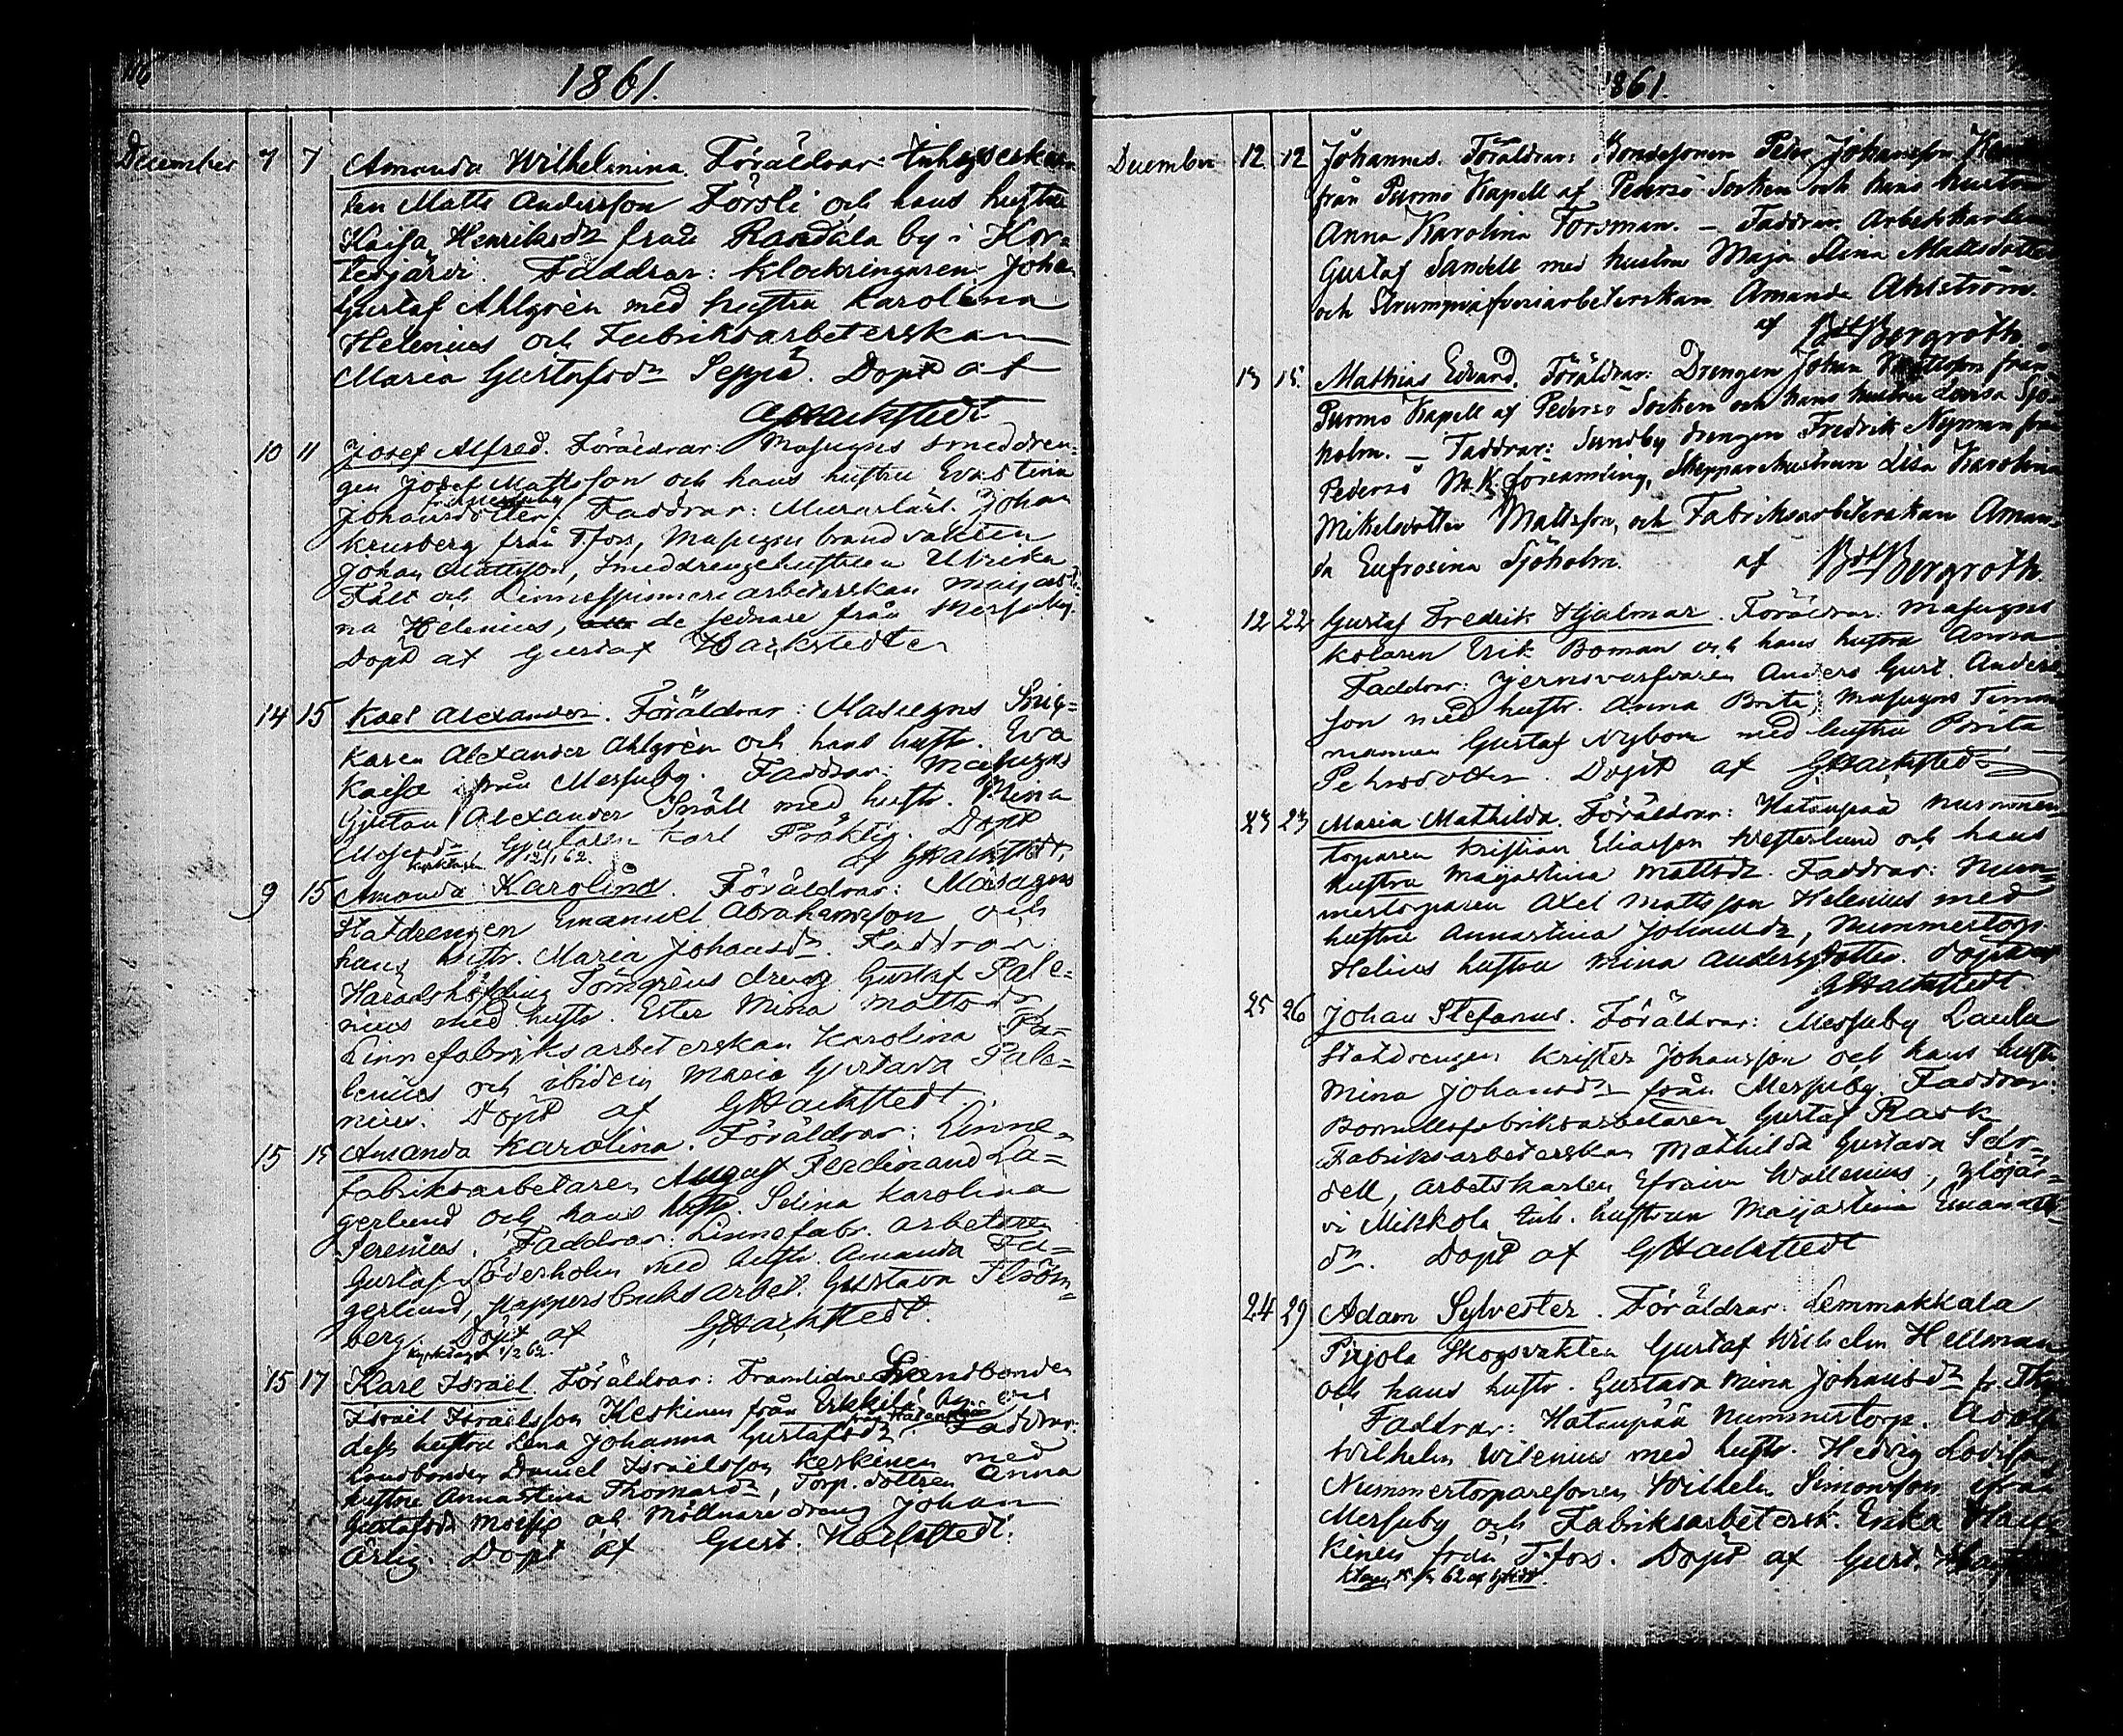 116
1861.
December 7 7 Amanda Wilhelmina. Föräldrar: Inhyseskar-
len Matts Andersson Försti och hans hustru
Kaisa Henriksdr från Randala by i Kor-
tesjärvi. Faddrar: Klockringaren Johan
Gustaf Ahlgrén med hustru Karolina
Helenius och Fabriksarbeterskan
Maria Gustafsdr Seppä. Döpt af
GHackstedt
10 11 Josef Alfred. Föräldrar: Masugns smeddren-
gen Josef Mattsson och hans hustru Eva Stina
fr. Messuby
Johansdotter. Faddrar: Murarlärl. Johan
Krusberg från T.fors, Masugns brandvakten
Johan Mattsson, Smeddrengehustrun Ulrika
Fält och Linnespinneriarbeterskan Majasti-
na Helenius, de sednare från Messuby.
Döpt af Gustaf Hackstedt
14 15 Karl Alexander. Föräldrar: Masugns Snic-
karen Alexander Ahlgrén och hans hustr. Eva
Kaisa från Messuby. Faddrar: Masugns
Gjutaren Alexander Snäll med hustr. Mina
Mosesdr Gjutaren Karl Präktig. Döpt
af GHackstedt.
Kyrktagen 12/1 62.
9 15 Amanda Karolina. Föräldrar: Masugns
Statdrengen Emanuel Abrahamsson och
hans hustr. Maria Johansdr. Faddrar
Häradshöfding Törngréns dreng Gustaf Pale-
nius med hustr. Ester Mina Mattsdr
Linnefabriksarbeterskan Karolina Pa-
lenius och ibidem Maria Gustava Pale-
nius. Döpt af GHackstedt.
15 15 Amanda Karolina. Föräldrar: Linne-
fabriksarbetaren August Ferdinand La-
gerlund och hans hustr. Selina Karolina
Serenius. Faddrar: Linnefabr. arbetaren
Gustaf Söderholm med hustr. Amanda Fa-
gerlund, pappersbruksarbet. Gustava Ström-
berg. Döpt af GHackstedt.
Kyrktagen 1/2 62.
15 17 Karl Israel. Föräldrar: Framlidne Landbonden
Israel Israelsson Keskinen från Erkkilä by och
dess hustru Lena Johanna Gustafsdr. Faddrar:
Landbonden Daniel Israelsson Keskinen med
hustru Annastina Thomasdr, Torp. dottren Anna
Gustafsdr och Möllnaredreng Johan
Ärlig. Döpt af Gust. Hackstedt.
1861.
December 12 12 Johannes. Föräldrar: Bondesonen Pehr Johansson
från Purmo Kapell af Pedersö Socken och hans hustru
Anna Karolina Forsman. – Faddrar: Arbetskarlen
Gustaf Sandell med hustru Maja Stina Mattsdotter
och Strumpväfveriarbeterskan Amanda Ahlström.
af Bergroth.
13 15 Mathias Edvard. Föräldrar: Drengen Johan Mattsson från
Purmo Kapell af Pedersö Socken och hans hustru Lovisa Sjö-
holm. – Faddrar: Sundby drengen Fredrik Nyman från
Pedersö M.K. församling, Skepparehustrun Lisa Karolina
Mikelsdotter Mattsson, och Fabriksarbeterskan Aman-
da Eufrosina Sjöholm. af Bergroth
12 22 Gustaf Fredrik Hjalmar. Föräldrar: Masugns
kolaren Erik Boman och hans hustru Anna
Faddrar: Jernsvarfvaren Anders Gust. Anders-
son med hustr. Anna Brita, Masugns Timmer-
mannen Gustaf Nybom med hustru Brita
Pehrsdotter. Döpt af GHackstedt
23 23 Maria Mathilda. Föräldrar: Hatanpää nummer-
torparen Kristian Eliasson Westerlund och hans
hustru Majastina Mattsdr. Faddrar: Num-
mertorparen Axel Mattsson Helenius med
hustru Annastina Johansdr, Nummertorp.
Helius hustru Mina Andersdotter. Döpt af
GHackstedt.
25 26 Johan Stefanus. Föräldrar: Messuby Laula
Statdrengen Krister Johansson och hans hustr.
Mina Johansdr från Messuby. Faddrar:
Bomullsfabriksarbetaren Gustaf Rask
Fabriksarbeterskan Mathilda Gustava
dell, Arbetskarlen Efraim Wallenius, Ylöjär-
vi Mikkola Inh. hustrun Majastina Emanuels-
dr. Döpt af GHackstedt
24 29 Adam Sylvester. Föräldrar: Lemmakkala
Pirjola Skogsvakten Gustaf Wilhelm Hellman
och hans hustr. Gustava Mina Johansdr fr.
Faddrar: Hatanpää Nummertorp. Adolf
Wilhelm Wilenius med hustr. Hedvig Lovisa,
Nummertorparesonen Wilhelm Simonsson ifrån
Messuby och Fabriksarbetersk. Erika
kinen från T.fors. Döpt af Gust. Hackstedt